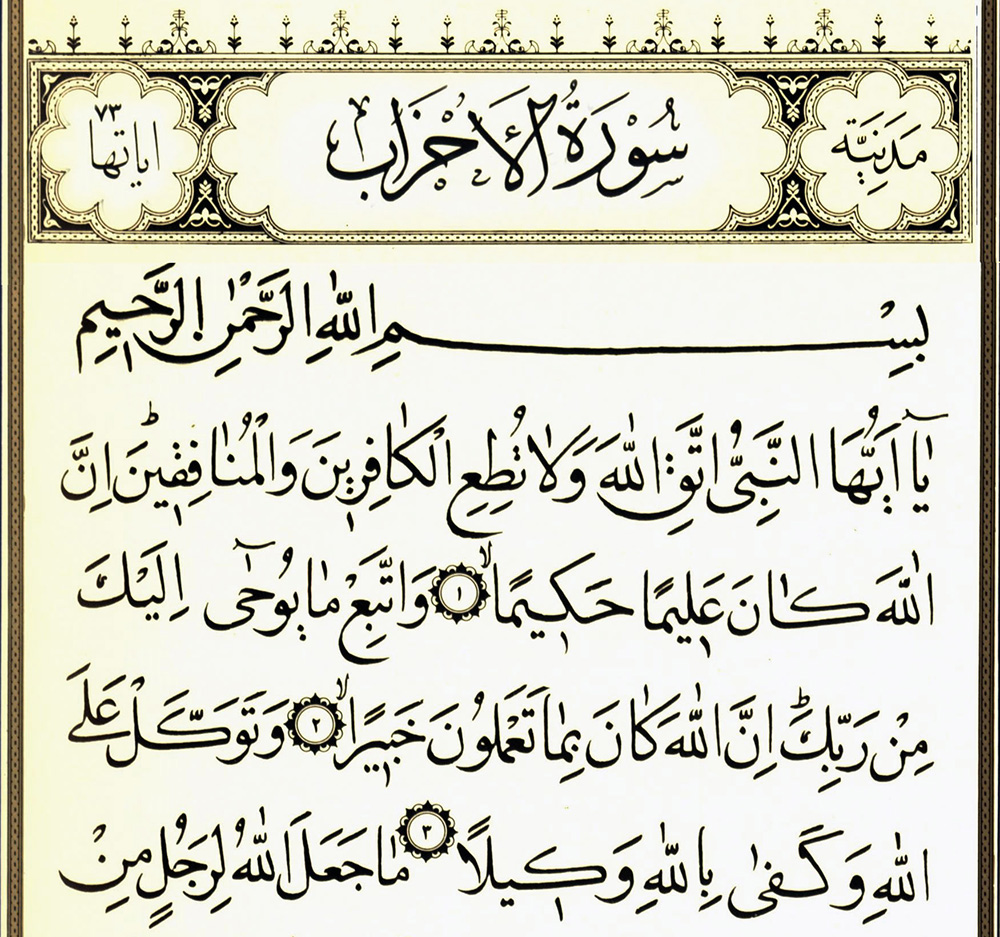 مَدَنِيَّة
سُورَةُ الْأَحْزَابِ
٧٣
اياتها
بِسْمِ اللّٰهِ الرَّحْمٰنِ الرَّحِيمِ
يَٓا اَيُّهَا النَّبِيُّ اتَّقِ اللّٰهَ وَلَا تُطِعِ الْكَافِرِينَ وَالْمُنَافِقِينَۜ اِنَّ
اللّٰهَ كَانَ عَلِيمًا حَكِيمًاۙ ١ وَاتَّبِعْ مَا يُوحٰٓى اِلَيْكَ
مِنْ رَبِّكَۜ اِنَّ اللّٰهَ كَانَ بِمَا تَعْمَلُونَ خَبِيرًاۙ ٢ وَتَوَكَّلْ عَلَى
اللّٰهِ وَكَفٰى بِاللّٰهِ وَكِيلًا ٣ مَا جَعَلَ اللّٰهُ لِرَجُلٍ مِنْ